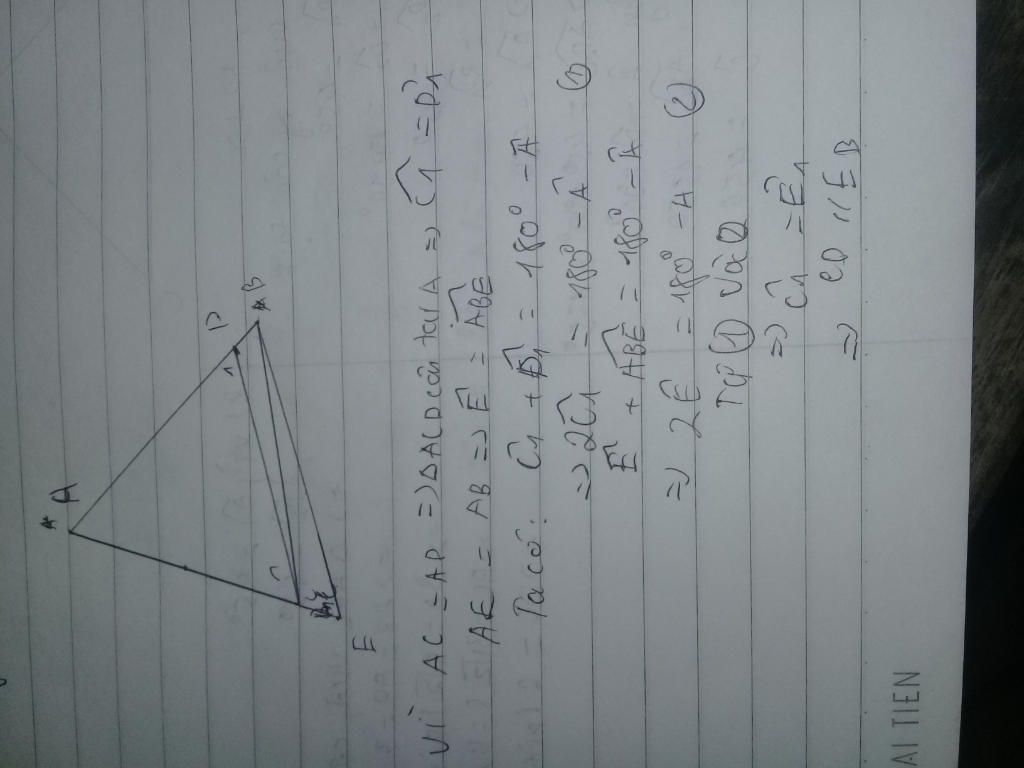 A
1 D
B
C
E
Vì AC = AD => ΔACD cân tại A => Ĉ1 = D̂1
AE = AB => Ê = ÂBE
- Ta có: Ĉ1 + D̂1 = 180° - Â
=> 2Ĉ1 = 180° - Â (1)
Ê + ÂBE = 180° - Â
=> 2Ê = 180° - Â (2)
Từ (1) và (2)
=> Ĉ1 = Ê1
=> CD // EB
AI TIEN